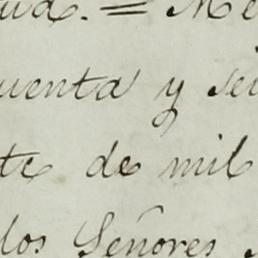 uenta y sei
te de mil
los Señores